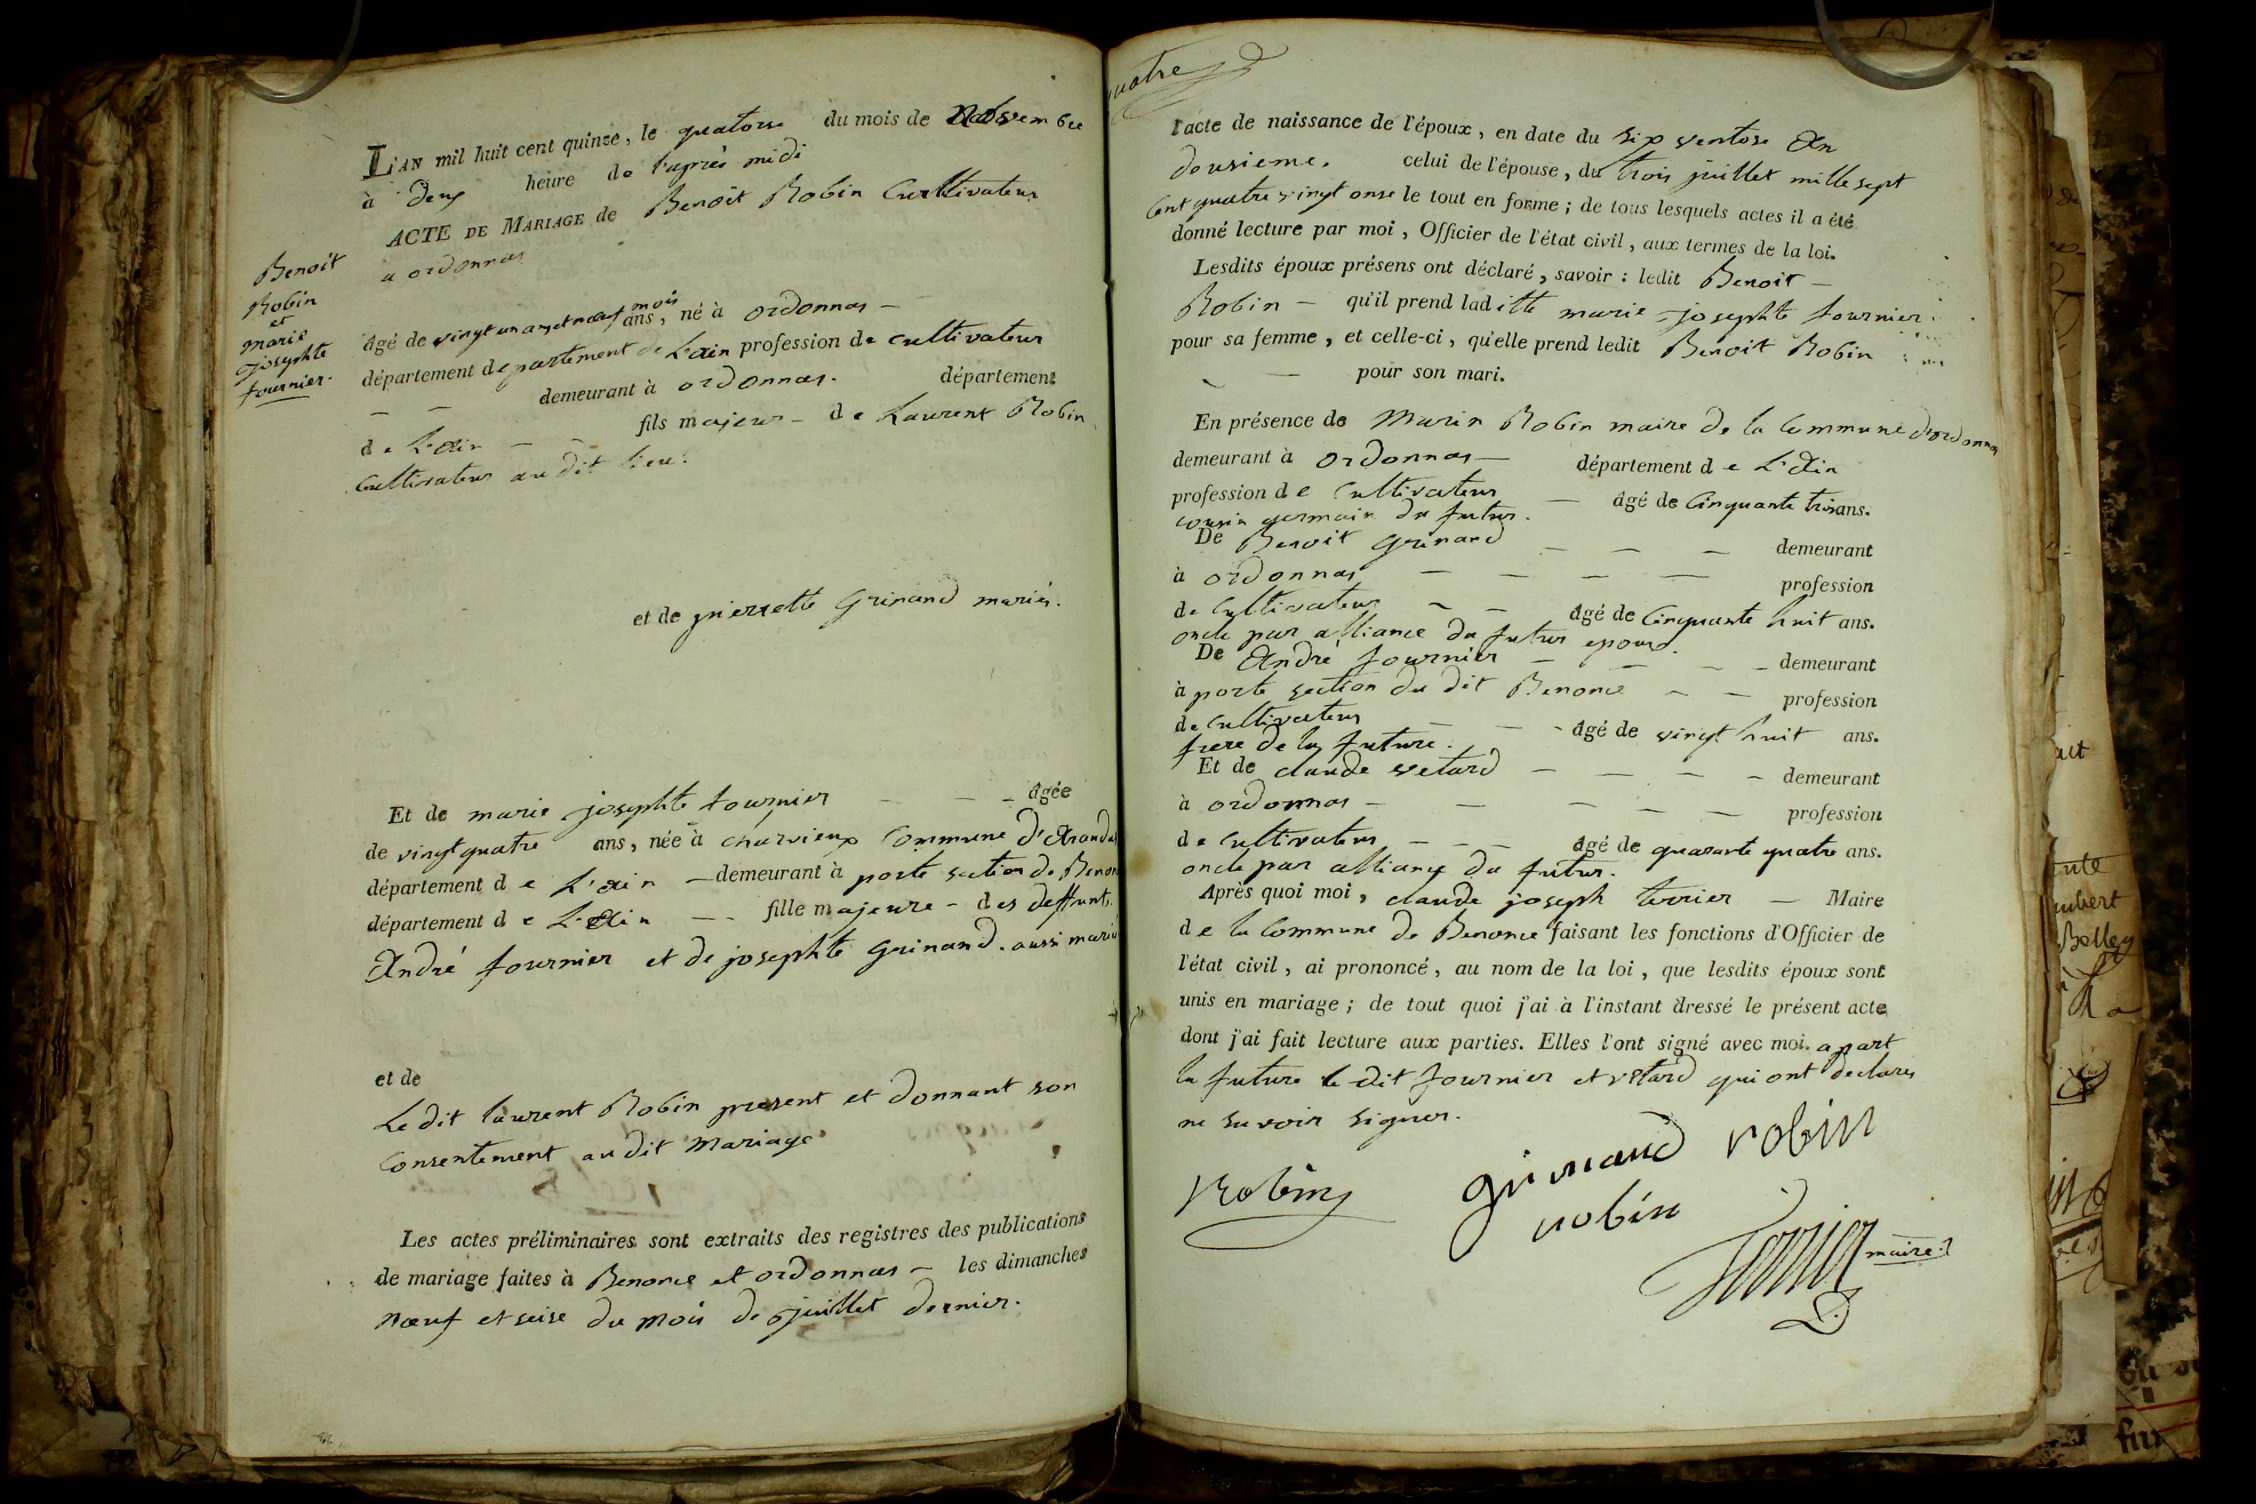 L'AN mil huit cent quinze, le quatorse du mois de Novembre
à deux heure de l'après midi
ACTE DE MARIAGE de Benoît Robin Cultivateur
a ordonnas
Benoit
Robin
et
marie
josephte
fournier.
âgé de vingt un ans et noeuf mois ans, né à ordonnas —
département departement de L'ain profession de cultivateur
— — demeurant à ordonnas. département
de L'ain — — fils majeur — de Laurent Robin
Cultivateur au dit lieu.
et de pierrette Grinand mariés.
Et de marie josephte fournier — — — âgée
de vingt quatre ans, née à charvieux Commune d'Arandas
département de L'ain — demeurant à porte section de Benonce
département de L'Ain — — fille majeure — des deffunts
André fournier et de josephte Grinand. aussi mariés
et de
Le dit laurent Robin present et donnant son
Consentement au dit Mariage
Les actes préliminaires sont extraits des registres des publications
de mariage faites à Benonce et ordonnas — les dimanches
noeuf et seise du mois de juillet dernier.
quatre
l'acte de naissance de l'époux, en date du six ventose An
dousieme. celui de l'épouse, du trois juillet mille sept
Cent quatre vingt onse le tout en forme; de tous lesquels actes il a été
donné lecture par moi, Officier de l'état civil, aux termes de la loi.
Lesdits époux présens ont déclaré, savoir: ledit Benoit —
Robin — qu'il prend laditte marie josephte fournier
pour sa femme, et celle-ci, qu'elle prend ledit Benoit Robin
— pour son mari.
En présence de Marin Robin maire de la Commune d'ordonnas
demeurant à ordonnas — département de L'Ain
profession de Cultivateur — âgé de Cinquante trois ans.
cousin germain du futur.
De Benoit Grinand — — — demeurant
à ordonnas — — — — profession
de Cultivateur — — âgé de Cinquante huit ans.
oncle par alliance du futur epoux.
De André fournier — — — — demeurant
à porte section du dit Benonce — — profession
de Cultivateur — — — âgé de vingt huit ans.
frere de la future.
Et de claude vetard — — — — demeurant
à ordonnas — — — — — profession
de Cultivateur — — — âgé de quarante quatre ans.
oncle par alliance du futur.
Après quoi moi, claude joseph terrier — Maire
de la Commune de Benonce faisant les fonctions d'Officier de
l'état civil, ai prononcé, au nom de la loi, que lesdits époux sont
unis en mariage; de tout quoi j'ai à l'instant dressé le présent acte
dont j'ai fait lecture aux parties. Elles l'ont signé avec moi. apart
la future le dit fournier et vetard qui ont declares
ne savoir signer.
Robin grinand robin
robin
Terrier maire